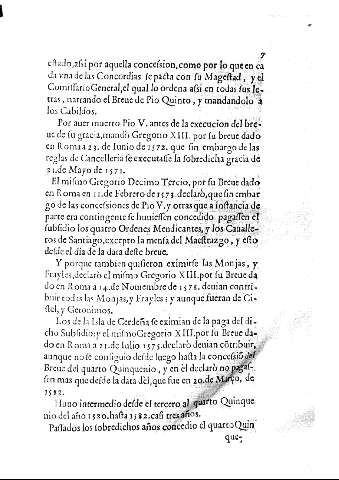 7
estado, assi por aquella concession, como por lo que en ca
da vna de las Concordias se pacta con su Magestad, y el
Comissario General, el qual lo ordena assi en todas sus le-
tras, narrando el Breue de Pio Quinto, y mandandolo a
los Cabildos.
Por auer muerto Pio V. antes de la execucion del bre-
ue de su gracia, mandò Gregorio XIII. por su breue dado
en Roma a 23. de Iunio de 1572. que sin embargo de las
reglas de Cancelleria se executasse la sobredicha gracia de
21. de Mayo de 1571.
El mismo Gregorio Decimo Tercio, por su Breue dado
en Roma en 11. de Febrero de 1573. declarò, que sin embar
go de las concessiones de Pio V. y otras que a instancia de
parte era contingente se huuiessen concedido pagassen el
subsidio los quatro Ordenes Mendicantes, y los Caualle-
ros de Santiago, excepto la mensa del Maestrazgo, y esto
desde el dia de la data deste breue.
Y porque tambien quisieron eximirse las Monjas, y
Frayles, declarò el mismo Gregorio XIII. por su Breue da
do en Roma a 14. de Nouiembre de 1578. deuian contri-
buir todas las Monjas, y Frayles; y aunque fueran de Ci-
stel, y Geronimos.
Los de la Isla de Cerdeña se eximian de la paga del di-
cho Subsidio; y el mismo Gregorio XIII. por su Breue da-
do en Roma a 21. de Iulio 1575. declarò deuian cōtribuir,
aunque no se consiguio desde luego hasta la concessiō del
Breue del quarto Quinquenio, y en èl declarò no pagas-
sin mas que desde la data dèl, que fue en 20. de Março, de
1582.
Huuo intermedio desde el tercero al quarto Quinque
nio del año 1580. hasta 1582. casi tres años.
Passados los sobredichos años concedio el quarto Quin
que-